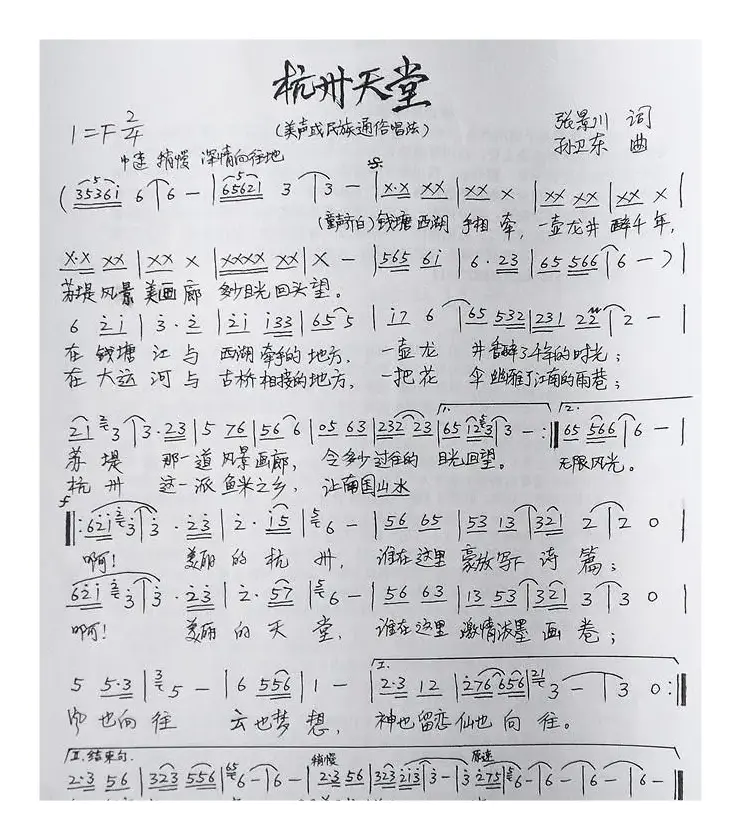 杭州天堂
(美声或民族通俗唱法)
1=F 2/4
张景川 词
孙卫东 曲
中速 稍慢 深情向往地
(35361 6 6 - | 65621 3 3 - | X·X XX | XX X | XX XX | XX X |
(童声齐白) 钱塘西湖 手相牵, 一壶龙井 醉千年,
X·X XX | XX X | XXXX XX | X - | 565 61 | 6·23 | 65 566 | 6 - ) |
苏堤风景 美画廊 多少目光回头望。
6 2 1 | 3·2 | 21 133 | 65 5 | 17 6 | 65 532 | 231 22 | 2 - |
在钱塘江与 西湖牵手的地方, 一壶龙井香醉了千年的时光;
在大运河与 古桥相接的地方, 一把花伞幽雅了江南的雨巷;
21 3 | 3·23 | 5 76 | 56 6 | 05 63 | 232 23 | 1. 65 123 | 3 - :|| 2. 65 566 | 6 - |
苏堤 那一道风景画廊, 令多少过往的 目光回望。 无限风光。
杭州 这一派鱼米之乡, 让南国山水
f
||: 621 3 | 3·23 | 2·15 | 6 - | 56 65 | 53 13 | 321 2 | 2 0 |
啊! 美丽的杭州, 谁在这里豪放写下诗篇;
621 3 | 3·23 | 2·57 | 6 - | 56 63 | 13 53 | 321 3 | 3 0 |
啊! 美丽的天堂, 谁在这里激情泼墨画卷;
5 5·3 | 5 - | 6 556 | 1 - | I. 2·3 12 | 276 656 | 3 - | 3 0 :||
也向往 云也梦想, 神也留恋仙也向往。
II.结束句. 稍慢 原速
2·3 56 | 323 556 | 6 - | 6 - | 2·3 56 | 323 213 | 3 - | 3 275 | 6 - | 6 - | 6 - | 6 - ||